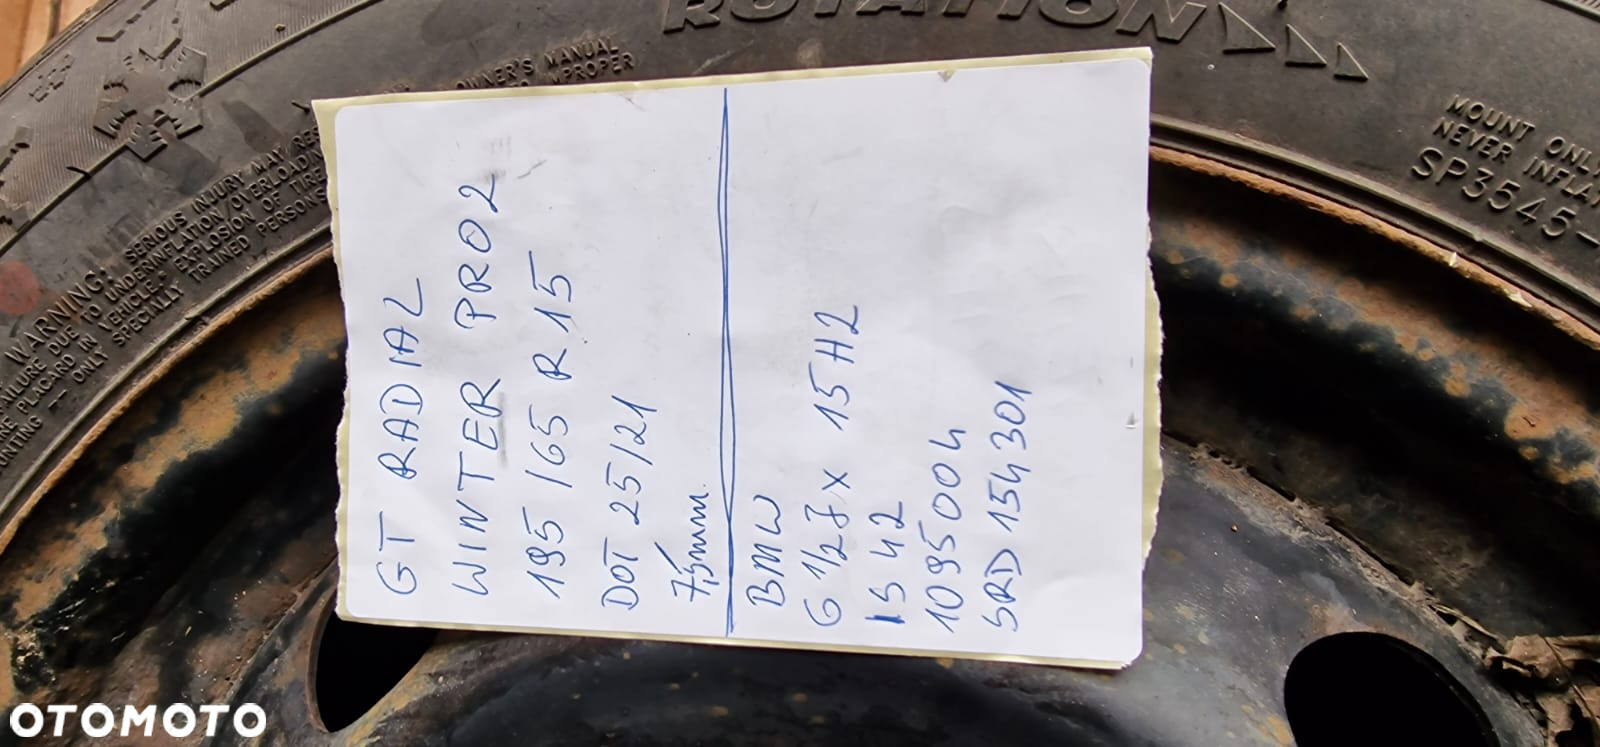 GT RADIAL
WINTER PRO2
195/65 R 15
DOT 25/21
7,5mm.
BMW
6 1/2 J x 15 H2
IS 42
1095004
SRD 154301
ROTATION
OWNER'S MANUAL
WARNING: SERIOUS INJURY MAY RES
FAILURE DUE TO UNDERINFLATION/OVERLOADIN
PLACARD IN VEHICLE. EXPLOSION OF TIRE
ONLY SPECIALLY TRAINED PERSONS
MOUNT ONLY
NEVER INFLA
SP3545-
OTOMOTO